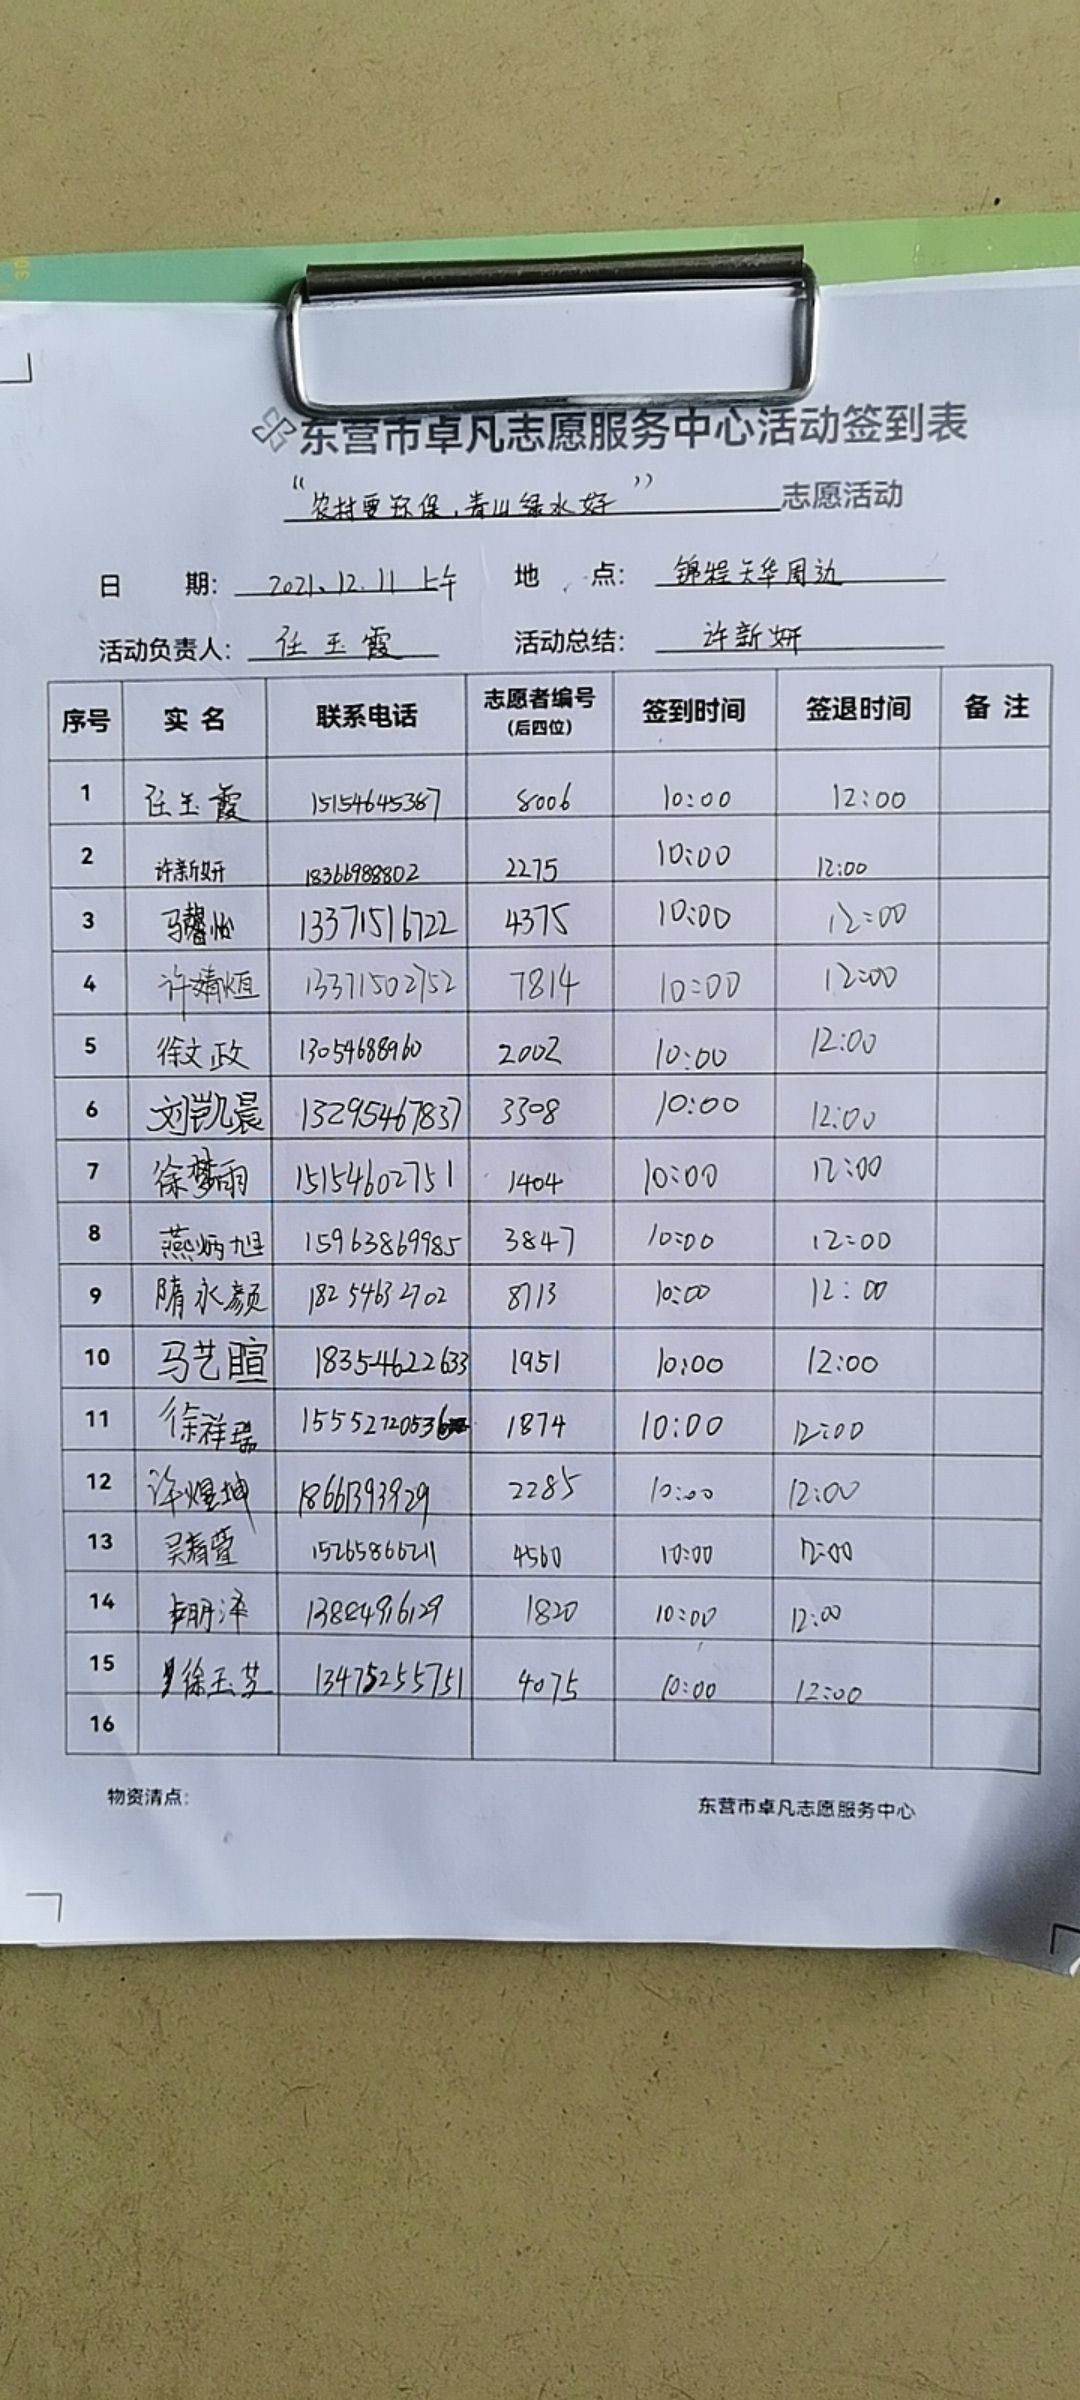 东营市卓凡志愿服务中心活动签到表
“农村要环保，青山绿水好” 志愿活动
日 期: 2021.12.11上午 地 点: 锦程天华周边
活动负责人: 任玉霞 活动总结: 许新妍
序号 实 名 联系电话 志愿者编号 (后四位) 签到时间 签退时间 备 注
1 任玉霞 15154645367 8006 10:00 12:00
2 许新妍 18366988802 2275 10:00 12:00
3 马馨怡 13371516722 4375 10:00 12:00
4 许婧烜 13371502752 7814 10:00 12:00
5 徐文政 13054688960 2002 10:00 12:00
6 刘凯晨 13295467837 3308 10:00 12:00
7 徐梦雨 15154602751 1404 10:00 12:00
8 燕炳旭 15963869985 3847 10:00 12:00
9 隋永颜 18254632702 8713 10:00 12:00
10 马艺暄 18354622633 1951 10:00 12:00
11 徐祥瑞 15552720536 1874 10:00 12:00
12 许煜坤 18661393929 2285 10:00 12:00
13 15265866211 4560 10:00 12:00
14 13884916129 1820 10:00 12:00
15 徐玉芝 13475255751 4075 10:00 12:00
16
物资清点: 东营市卓凡志愿服务中心